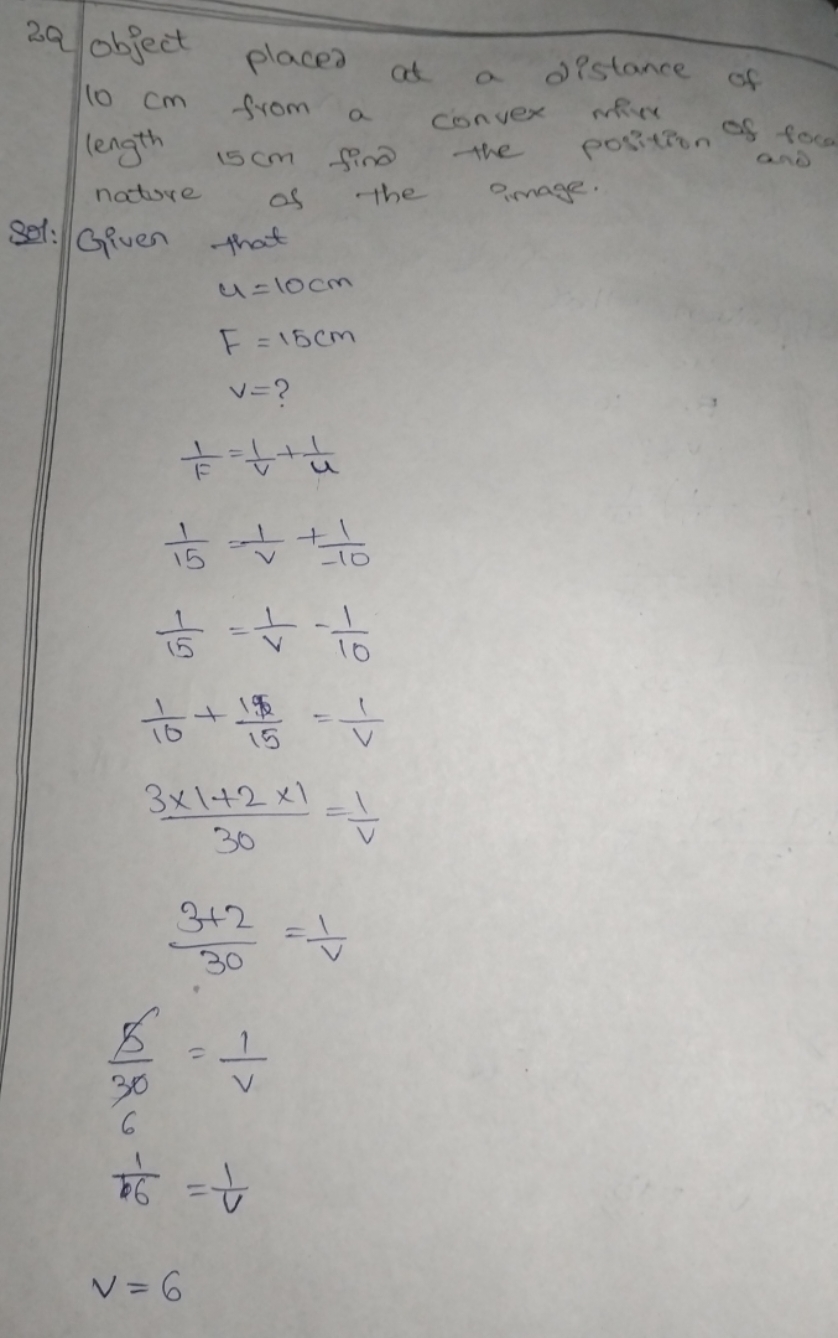 2Q object placed at a distance of
10 cm from a convex mirr
of foca
length 15cm find the position and
nature of the image.
Sol: Given that
u=10cm
F=15cm
v=?
1/F = 1/v + 1/u
1/15 = 1/v + 1/-10
1/15 = 1/v - 1/10
1/10 + 1/15 = 1/v
3x1+2x1/30 = 1/v
3+2/30 = 1/v
5/30 = 1/v
6
1/6 = 1/v
v=6